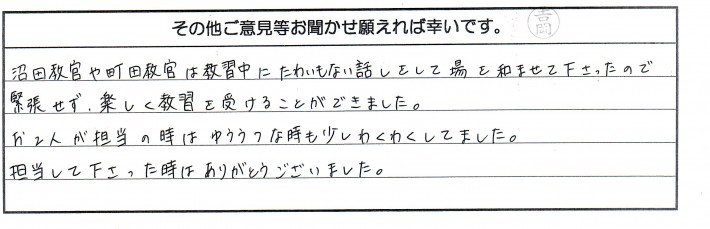 その他ご意見等お聞かせ願えれば幸いです。
吉岡
沼田教官や町田教官は教習中にたわいもない話しをして場を和ませて下さったので
緊張せず、楽しく教習を受けることができました。
お2人が担当の時はゆううつな時も少しわくわくしてました。
担当して下さった時はありがとうございました。